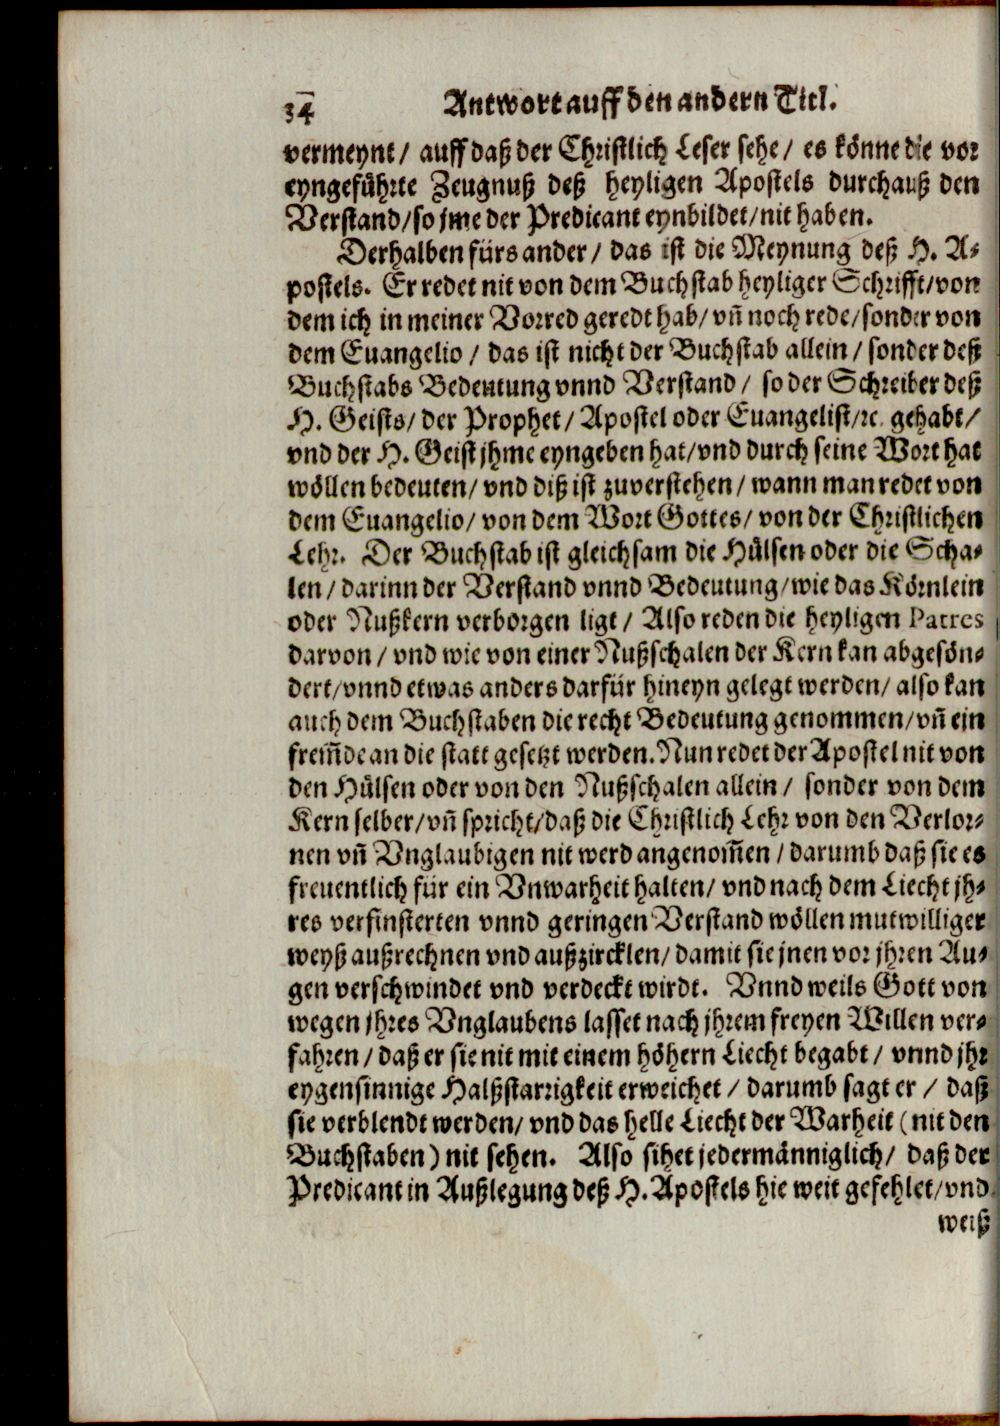 34 Antwort auff den andern Titl.
vermeynt / auff daß der Christlich Leser sehe / es könne die vor
eyngeführte Zeugnuß deß heyligen Apostels durchauß den
Verstand / so jme der Predicant eynbildet / nit haben.
Derhalben fürs ander / das ist die Meynung deß H. A⸗
postels. Er redet nit von dem Buchstab heyliger Schrifft / von
dem ich in meiner Vorred geredt hab / vñ noch rede / sonder von
dem Euangelio / das ist nicht der Buchstab allein / sonder deß
Buchstabs Bedeutung vnnd Verstand / so der Schreiber deß
H. Geists / der Prophet / Apostel oder Euangelist / ꝛc. gehabt /
vnd der H. Geist jhme eyngeben hat / vnd durch seine Wort hat
wöllen bedeuten / vnd diß ist zuverstehen / wann man redet von
dem Euangelio / von dem Wort Gottes / von der Christlichen
Lehr. Der Buchstab ist gleichsam die Hülsen oder die Scha⸗
len / darinn der Verstand vnnd Bedeutung / wie das Körnlein
oder Nußkern verborgen ligt / Also reden die heyligen Patres
darvon / vnd wie von einer Nußschalen der Kern kan abgesön⸗
dert / vnnd etwas anders darfür hineyn gelegt werden / also kan
auch dem Buchstaben die recht Bedeutung genommen / vñ ein
frem̃de an die statt gesetzt werden. Nun redet der Apostel nit von
den Hülsen oder von den Nußschalen allein / sonder von dem
Kern selber / vñ spricht / daß die Christlich Lehr von den Verlor⸗
nen vñ Vnglaubigen nit werd angenom̃en / darumb daß sie es
freuentlich für ein Vnwarheit halten / vnd nach dem Liecht jh⸗
res verfinsterten vnnd geringen Verstand wöllen mutwilliger
weyß außrechnen vnd außzircklen / damit sie jnen vor jhren Au⸗
gen verschwindet vnd verdeckt wirdt. Vnnd weils Gott von
wegen jhres Vnglaubens lasset nach jhrem freyen Willen ver⸗
fahren / daß er sie nit mit einem höhern Liecht begabt / vnnd jhr
eygensinnige Halßstarrigkeit erweichet / darumb sagt er / daß
sie verblendt werden / vnd das helle Liecht der Warheit (nit den
Buchstaben) nit sehen. Also sihet jedermänniglich / daß der
Predicant in Außlegung deß H. Apostels hie weit gefehlet / vnd
weiß